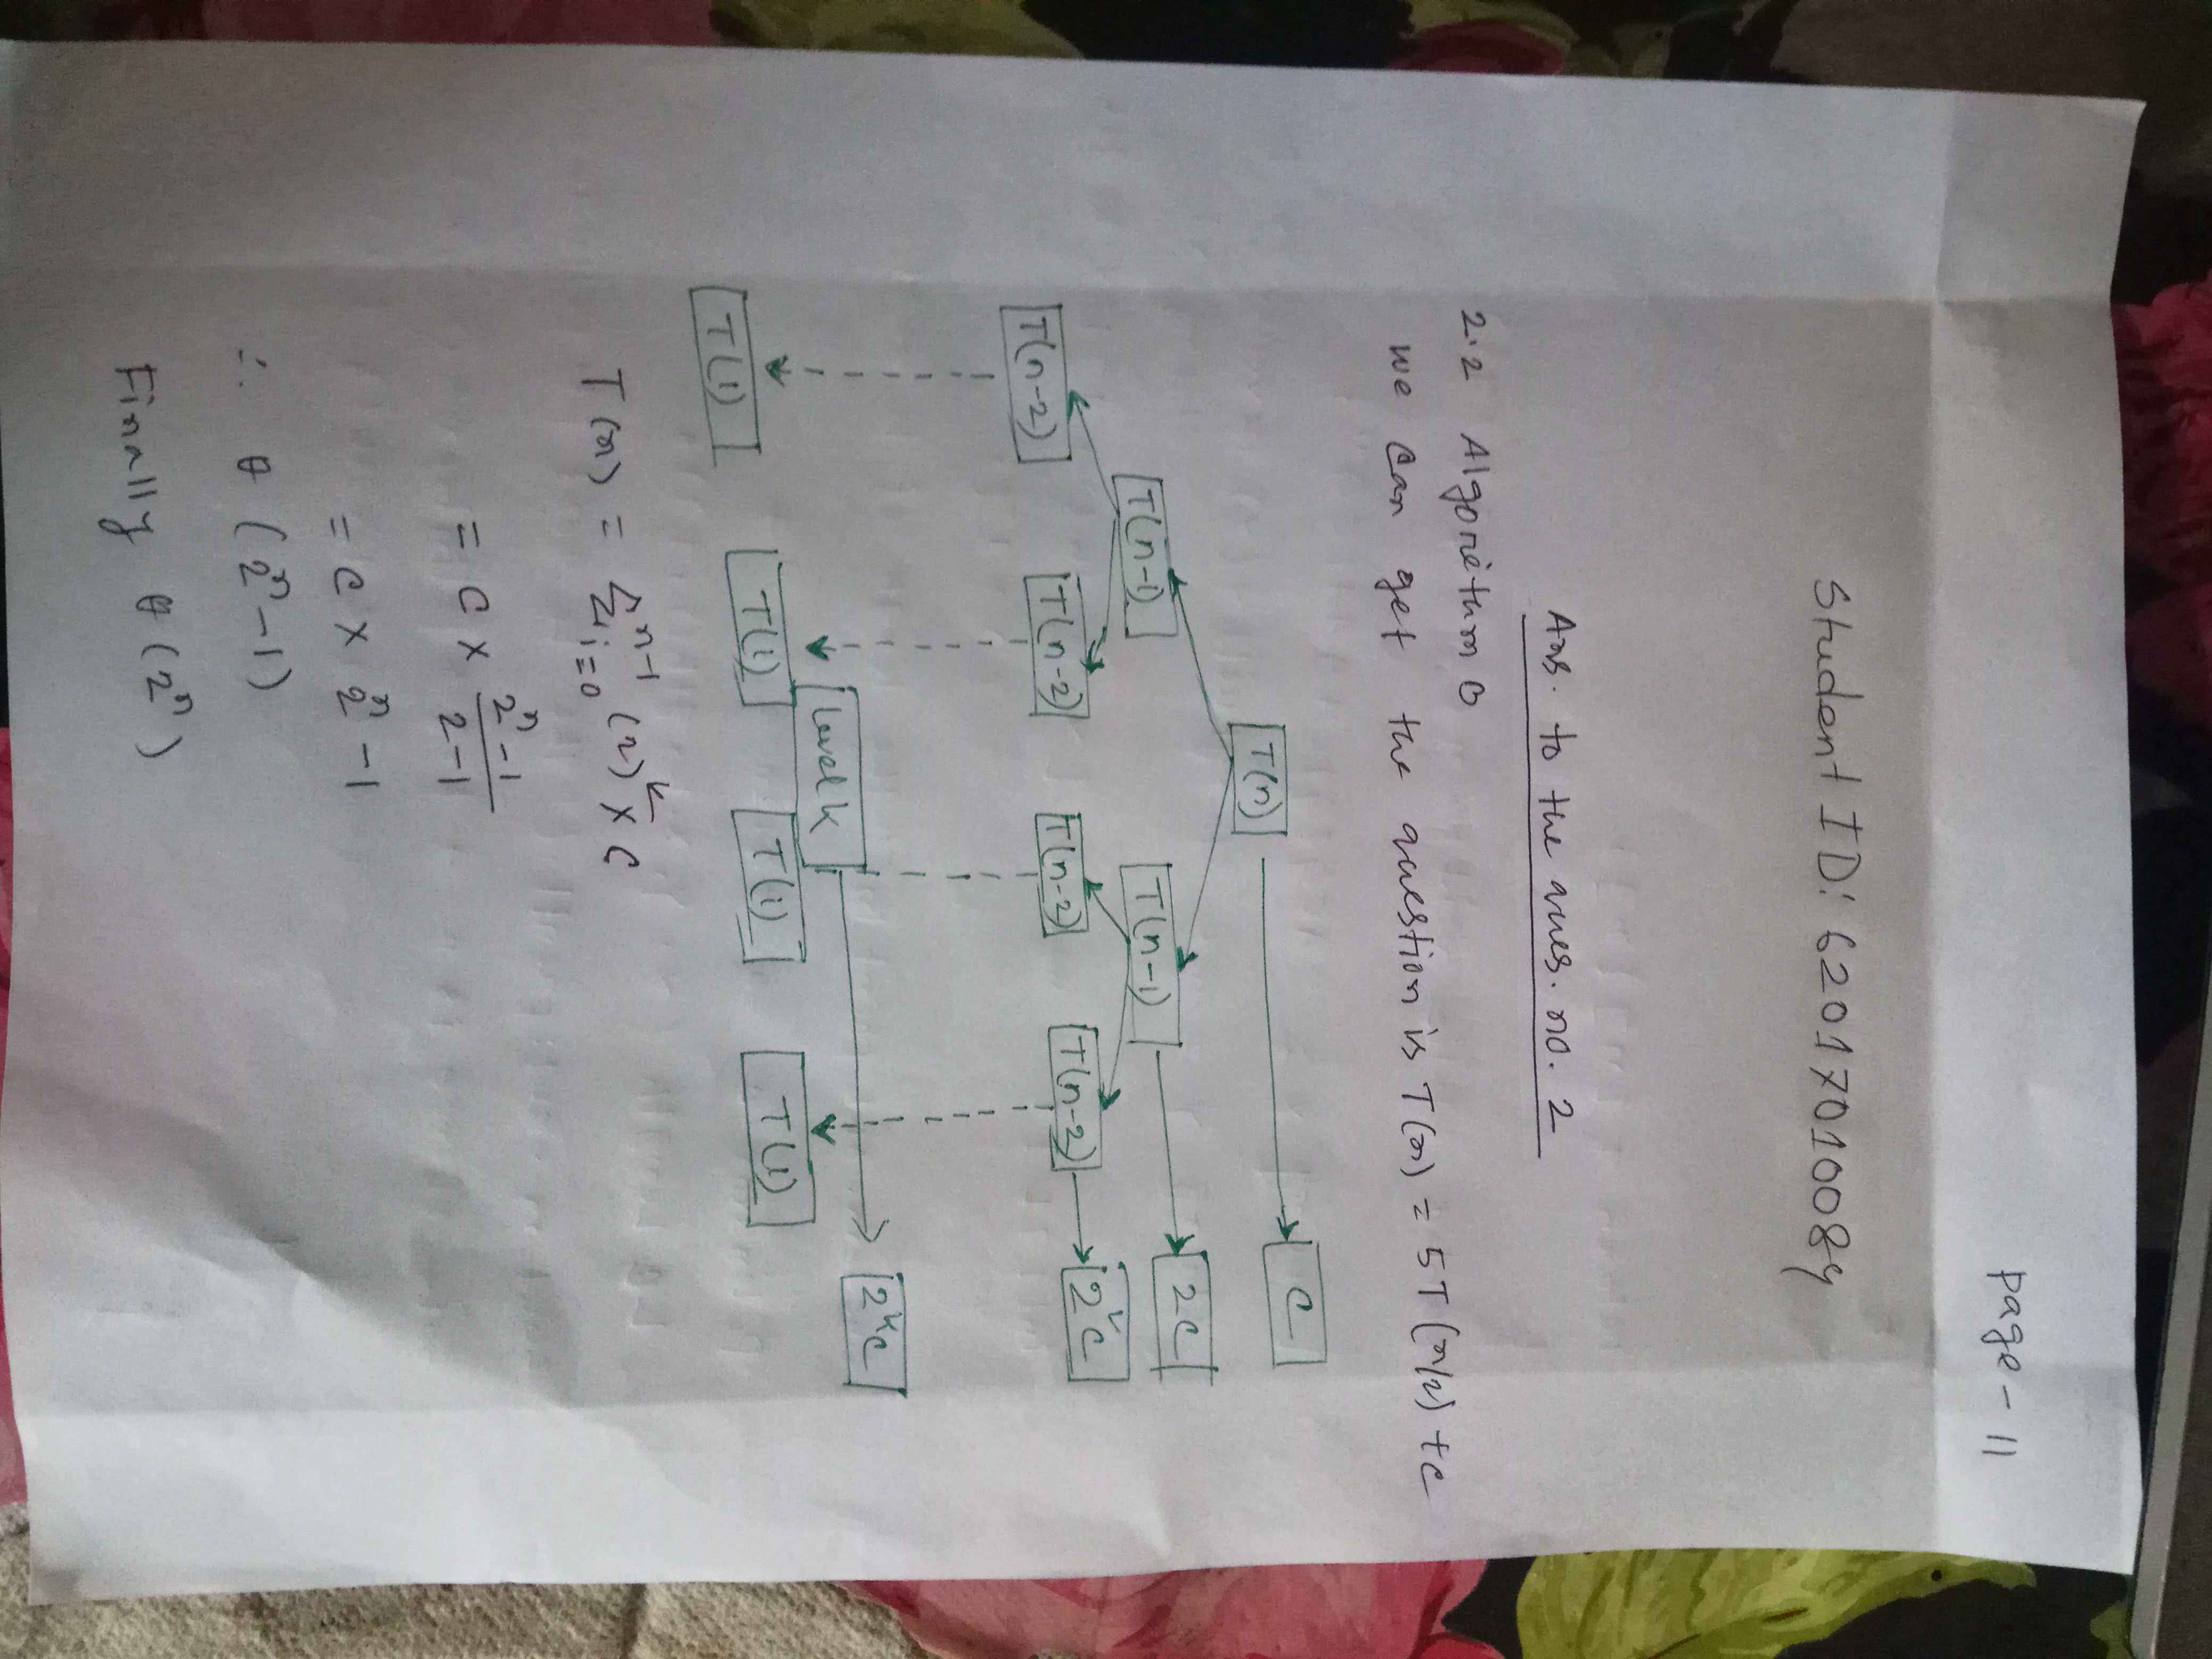 Page - 11
Student ID: 62017010084
Ans. to the ques. no. 2
2.2 Algorithm B
we can get the question is T(n) = 5T(n/2) + c
T(n) C
T(n-1) T(n-1) 2C
T(n-2) T(n-2) T(n-2) T(n-2) 2²C
level k 2ᵏC
T(1) T(1) T(1) T(1)
T(n) = Σᵢ₌₀ⁿ⁻¹ (2)ᵏ × C
= C × (2ⁿ-1)/(2-1)
= C × 2ⁿ-1
∴ θ (2ⁿ-1)
Finally θ (2ⁿ)